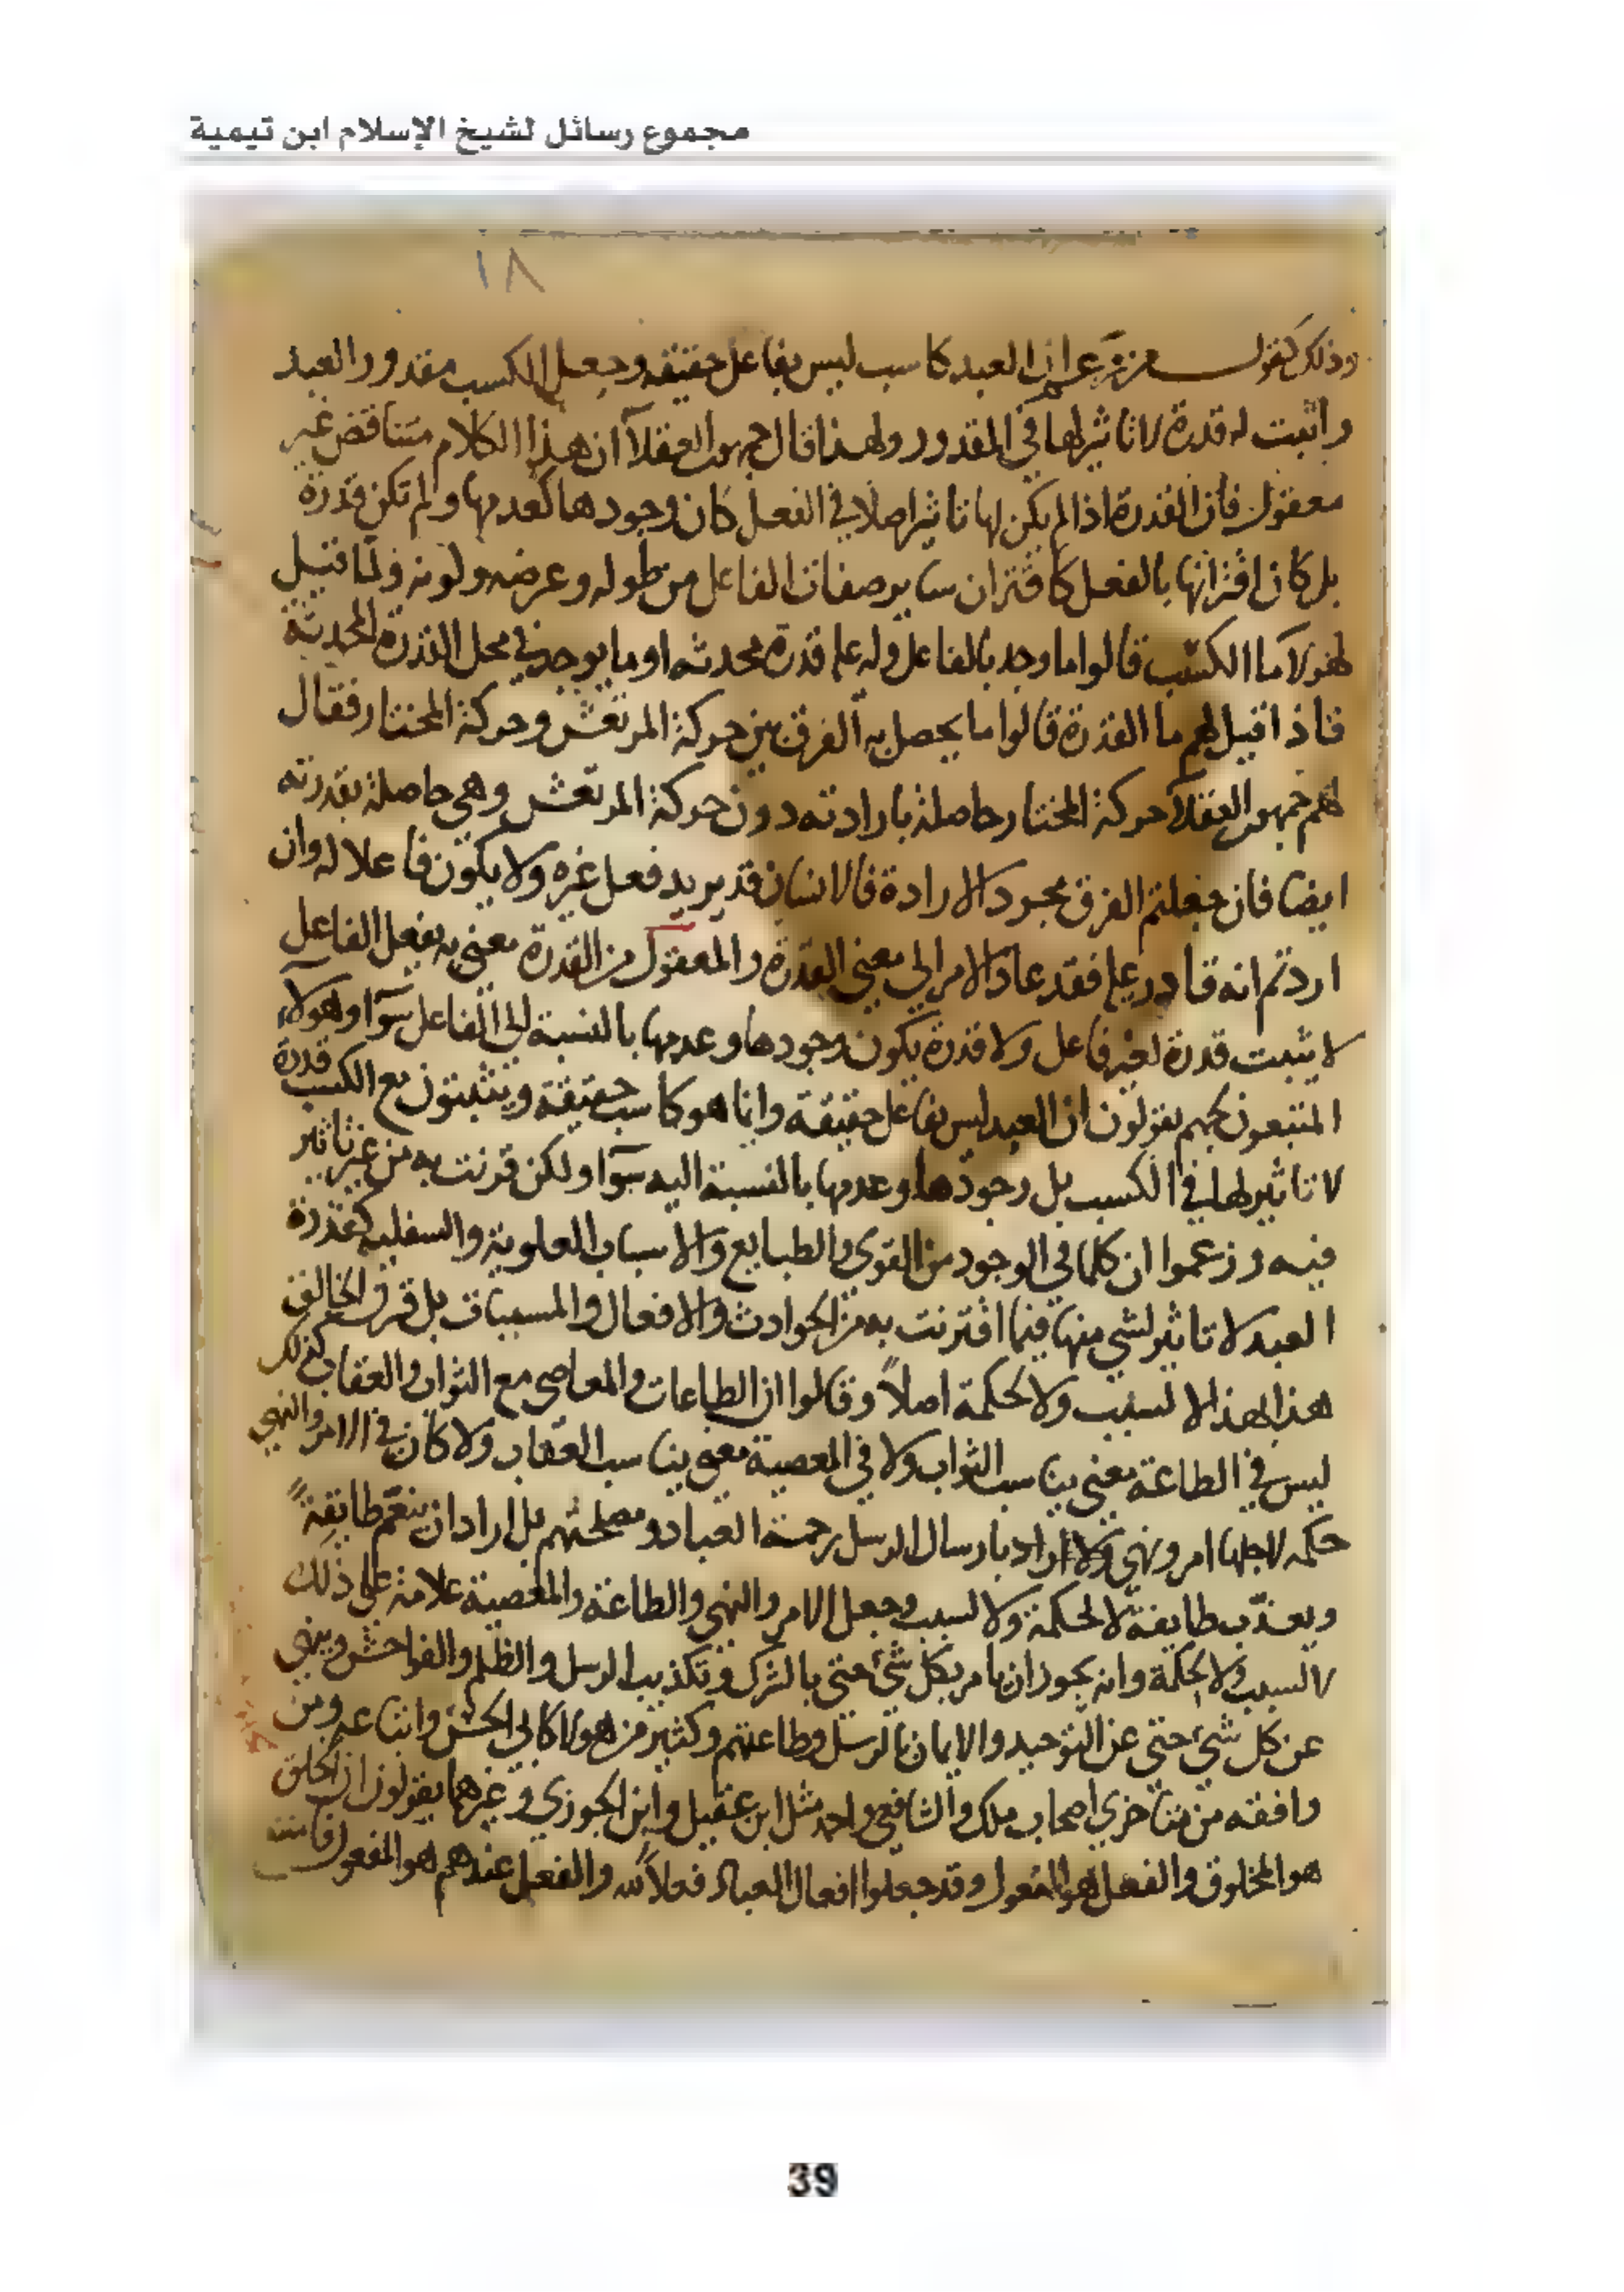 مجموع رسائل لشيخ الإسلام ابن تيمية
١٨
وذلك كقول من زعم ان العبد كاسب ليس بفاعل حقيقه وجعل الكسب مقدور العبد
واثبت له قدرة لا تاثير لها في المقدور ولهذا قال جمهور العقلآ ان هذا الكلام متناقض غير
معقول فان القدرة اذا لم يكن لها تاثير اصلا في الفعل كان وجودها كعدمها ولم تكن قدرة
بل كان اقترانها بالفعل كاقتران ساير صفات الفاعل من طوله وعرضه ولونه ولما قيل
لهولآ ما الكسب قالوا ما وجد بالفاعل وله عليه قدرة محدثه او ما يوجد في محل القدرة المحدثة
فاذا قيل لهم ما القدرة قالوا ما يحصل به الفرق بين حركة المرتعش وحركة المختار فقال
لهم جمهور العقلآ حركة المختار حاصلة بارادته دون حركة المرتعش وهي حاصلة بقدرته
ايضا فان جعلتم الفرق مجرد الارادة فالانسان قد يريد فعل غيره ولا يكون فاعلا له وان
اردتم انه قادر عليه فقد عاد الامر الي معني القدرة والمعقول من القدرة معني به يفعل الفاعل
لا يثبت قدرة لغير فاعل ولا قدرة يكون وجودها وعدمها بالنسبة الي الفاعل سوآ وهولآ
المتبعون جهم يقولون ان العبد ليس بفاعل حقيقة وانما هو كاسب حقيقة ويثبتون مع الكسب قدرة
لا تاثير لها في الكسب بل وجودها وعدمها بالنسبة اليه سوآ ولكن قرنت به من غير تاثير
فيه وزعموا ان كلما في الوجود من القوي والطبايع والاسباب العلوية والسفليه كقدرة
العبد لا تاثير لشي منها فيما اقترنت به من الحوادث والافعال والمسببات بل قرن الخالق
هذا بهذا لا لسبب ولا لحكمة اصلاً وقالوا ان الطاعات والمعاصي مع الثواب والعقاب كذلك
ليس في الطاعة معني يناسب الثواب ولا في المعصية معني يناسب العقاب ولا كان في الامر والنهي
حكمه لاجلها امر ونهي ولا اراد بارسال الرسل رحمة العباد ومصلحتهم بل اراد ان ينعم طايفةً
ويعذب طايفة لا لحكمة ولا لسبب وجعل الامر والنهي والطاعة والمعصية علامة علي ذلك
لا لسبب ولا لحكمة وانه يجوز ان يامر بكل شئ حتي بالشرك وتكذيب الرسل والظلم والفواحش وينهي
عن كل شئ حتي عن التوحيد والايمان بالرسل وطاعتهم وكثير من هولا كابي الحسن واتباعه ومن
وافقه من متاخري اصحاب ملك والشافعي واحمد مثل ابن عقيل وابن الجوزي وغيرهما يقولون ان الخلق
هو المخلوق والفعل هو المفعول وقد جعلوا افعال العباد فعلاً لله والفعل عندهم هو المفعول
39